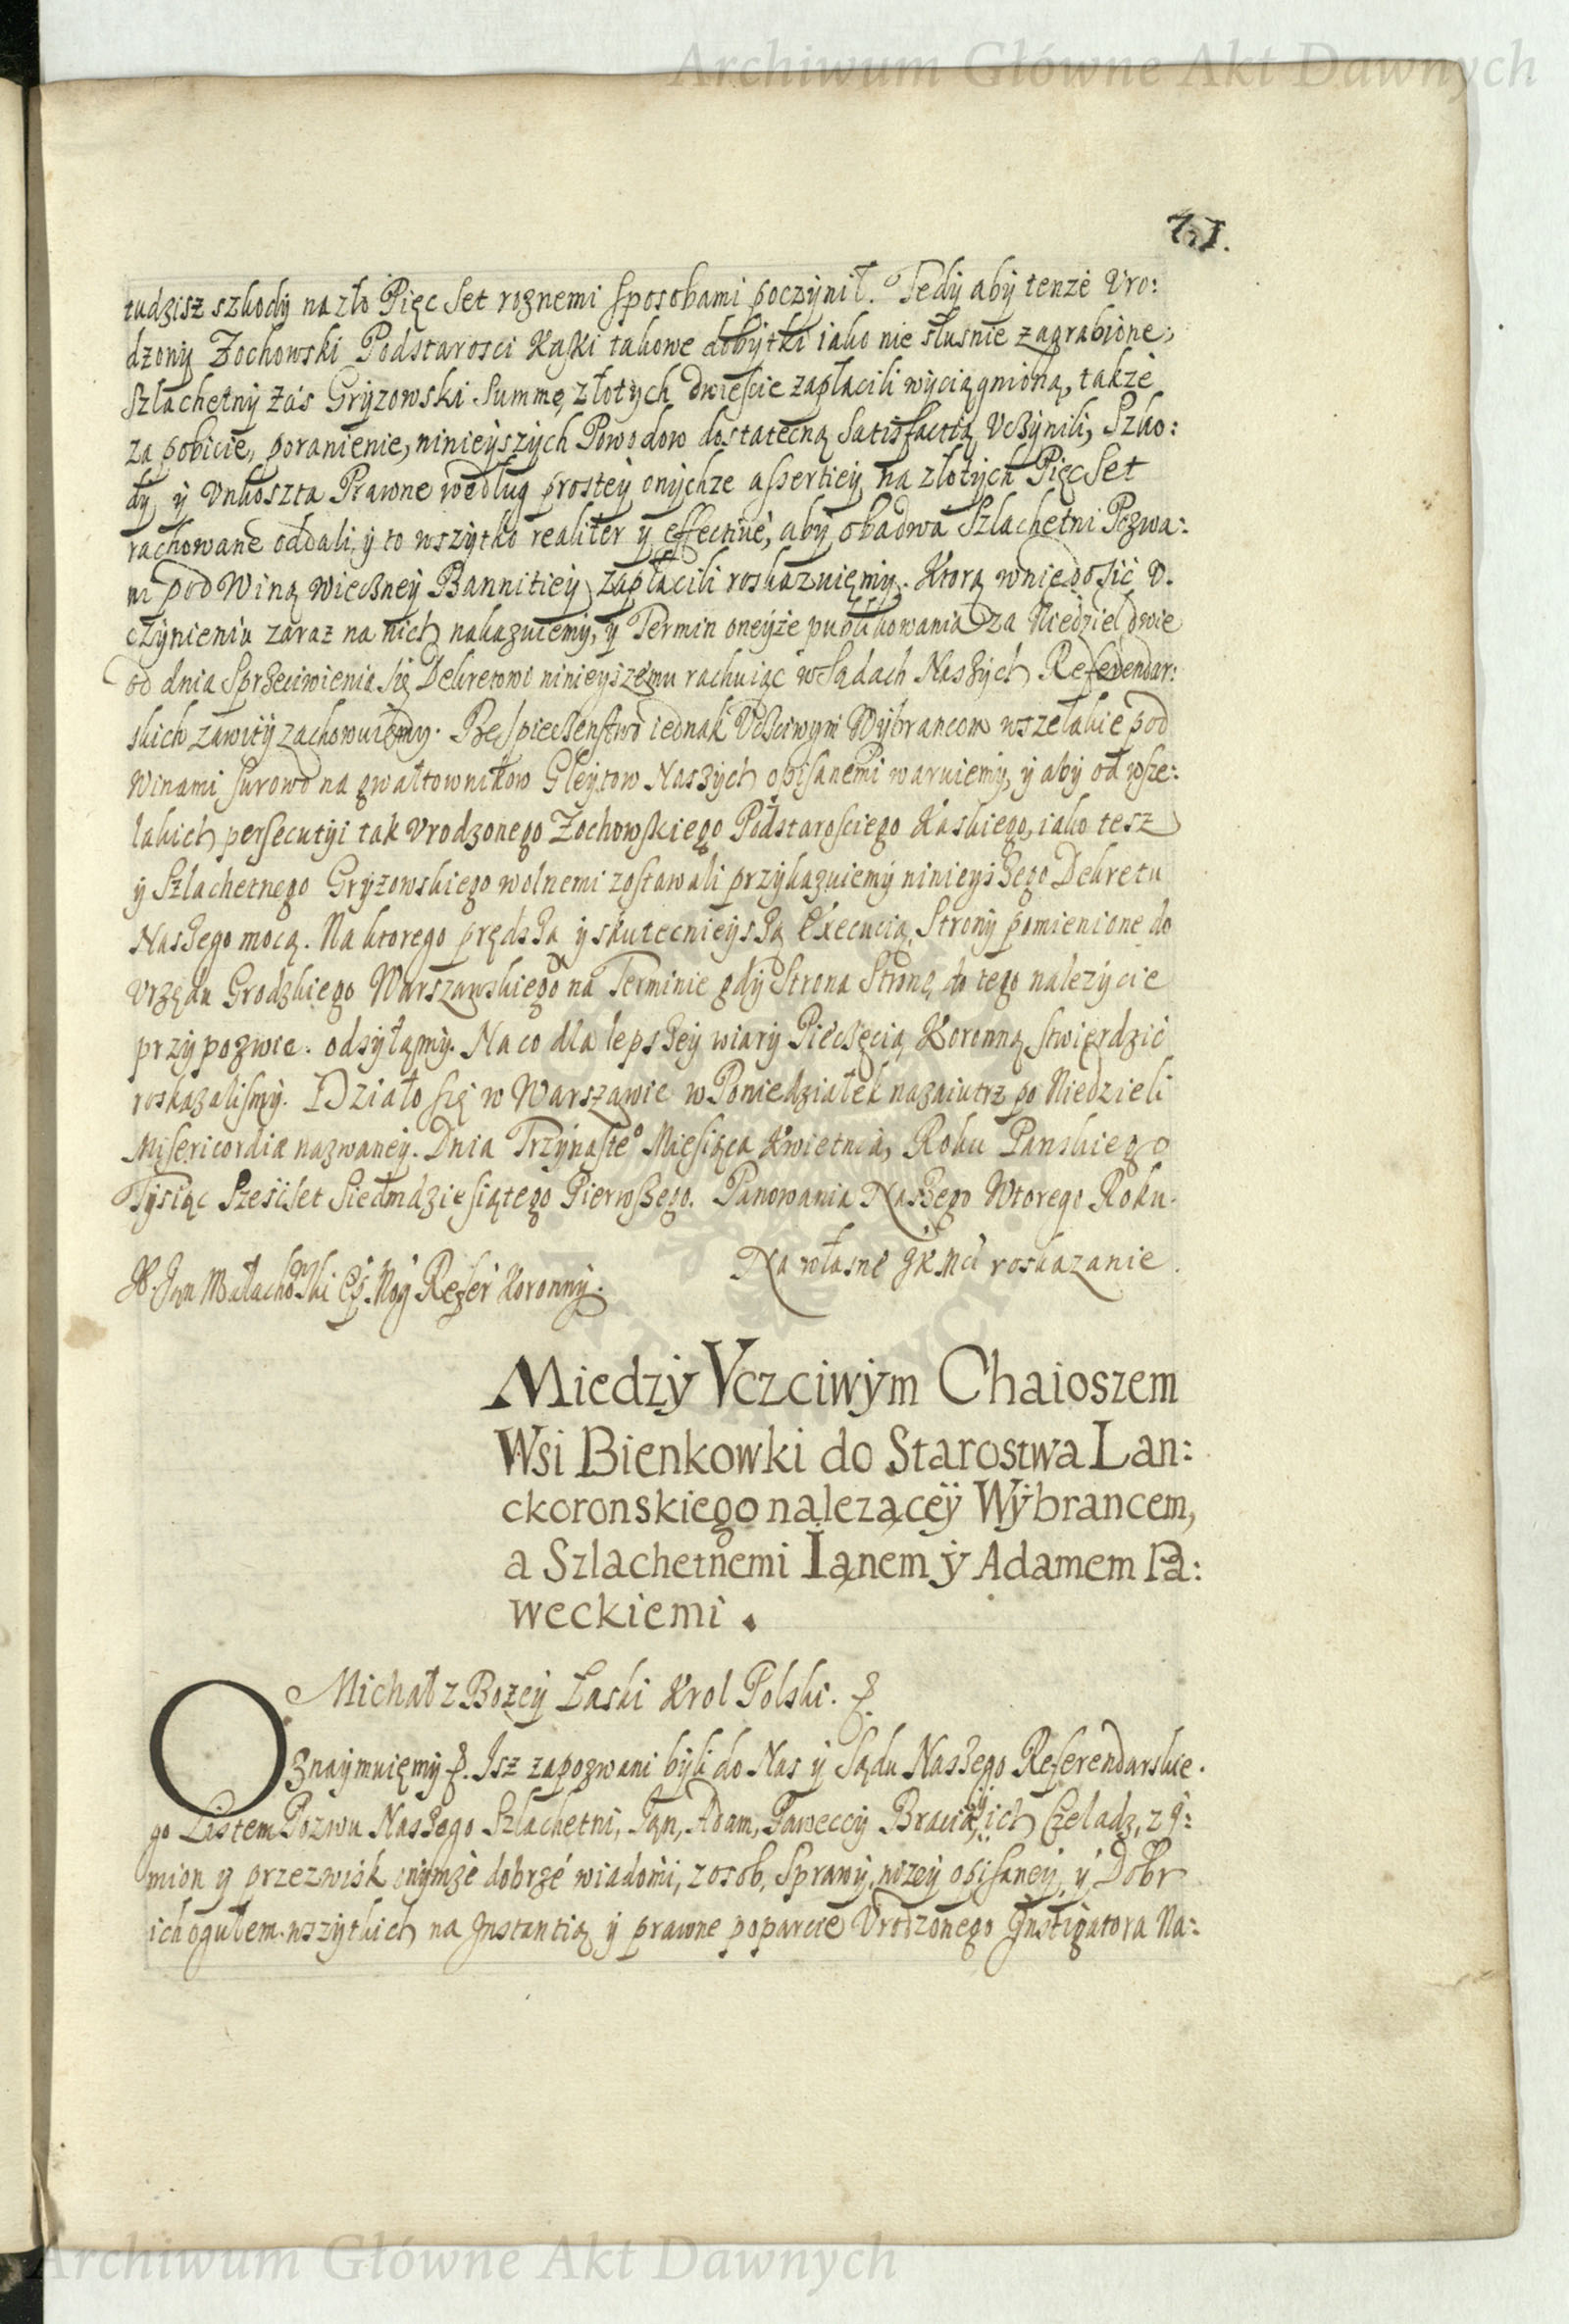 Archiwum Główne Akt Dawnych
71.
tudzisz szkody na zło Pięc Set roznemi sposobami poczynił. Tedy aby tenże Vro:
dzony Żochowski Podstarosci Kąski takowe dobytki iako nie słusnie zagrabione,
Szlachetny zaś Gryzowski Summę złotych dwiescie zapłacili wyciągnioną, także
za pobicie, poranienie, ninieyszych Powodow dostateczną Satisfactią Vczynili, Szko:
dy y Vnkoszta Prawne według prostey onychze assertiey na złotych Pięc Set
rachowane oddali, y to wszytko realiter y effectiue, aby obadwa Szlachetni Pozwa:
ni pod Winą wieczney Bannitiey zapłacili roskazuięmy. Ktorą w niedosic V.
czynieniu zaraz na nich nakazuiemy, y Termin oneyże publikowania za Niedziel dwie
od dnia Sprzeciwienia się Dekretowi ninieyszemu rachuiąc w Sądach Naszych Referendar:
skich zawity zachowuięmy. Bespieczenstwo iednak Vcsciwym Wybrancom wszelakie pod
Winami surowo na gwałtownikow Gleytow Naszych opisanemi waruiemy, y aby od wsze:
lakich persecutyi tak Vrodzonego Żochowskiego Podstarosciego Kąskiego, iako tesz
y Szlachetnego Gryzowskiego wolnemi zostawali przykazuiemy ninieyszego Dekretu
Naszego mocą. Na ktorego prędszą y skutecnieyszą Execucią, Strony pomienione do
Vrzędu Grodzkiego Warszawskiego na Terminie gdy Strona Stronę do tego nalezycie
przypozwie. odsyłamy. Na co dla lepszey wiary Pieczęcią Koronną stwierdzić
roskazalismy. Działo się w Warszawie w Poniedziałek nazaiutrz po Niedzieli
Misericordiæ nazwaney. Dnia Trzynaste⁰ Miesiąca Kwietnia, Roku Panskiego
Tysiąc Sześcset Siedmdziesiątego Pierwszego. Panowania Naszego Wtorego Roku.
X. Jan Małachowski Refer Koronny.
Na własne JKMci roskazanie.
Miedzy Vczciwym Chaioszem
Wsi Bienkowki do Starostwa Lan:
ckoronskiego nalezącey Wybrancem,
a Szlachetnemi Ianem y Adamem Pa:
weckiemi.
Michał z Bozey Łaski Krol Polski. &.
Oznaymuięmy &. Isz zapozwani byli do Nas y Sądu Naszego Referendarskie.
go Listem Pozwu Naszego Szlachetni, Jan, Adam, Paweccy Bracia, y ich Czeladz, z I:
mion y przezwisk onymże dobrze wiadomi, z osob, Sprawy, nizey opisaney, y Dobr
ich ogułem wszytkich na Instantią y prawne poparcie Vrodzonego Instigatora Na:
Archiwum Główne Akt Dawnych